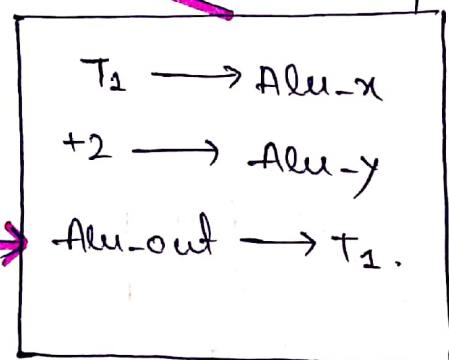 T1 → Alu-x
+2 → Alu-y
Alu-out → T1.